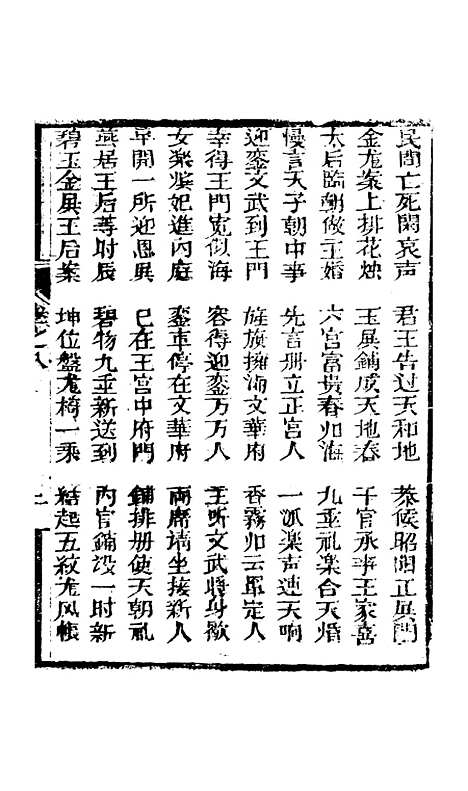 民間亡死閙哀声　君王告过天和地　恭候昭阳正㞟門
金龙案上排花烛　玉㞟鋪成天地春　千官承事王家喜
太后臨朝做主婚　六宮富贵春归海　九垂礼楽合天婚
慢言天子朝中事　先言册立正宮人　一派楽声連天响
迎銮文武到王門　旌旗擁满文華府　香霧归云罩定人
幸得王門宽似海　容得迎銮万万人　王听文武將身歇
女楽嫔妃進內庭　銮車停在文華府　両席请坐接新人
早開一所迎恩㞟　已在王宮中府門　鋪排册使天朝礼
燕居王后等时辰　碧物九垂新送到　內官鋪設一时新
碧玉金㞟王后案　坤位盤龙椅一乘　結起五紋龙凤帳